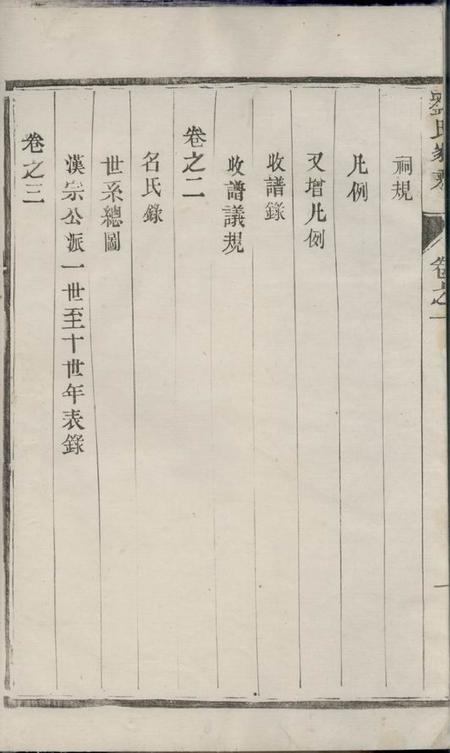 劉氏家乘
卷之一
祠規
凡例
又增凡例
收譜錄
收譜議規
卷之二
名氏錄
世系總圖
漢宗公派一世至十世年表錄
卷之三